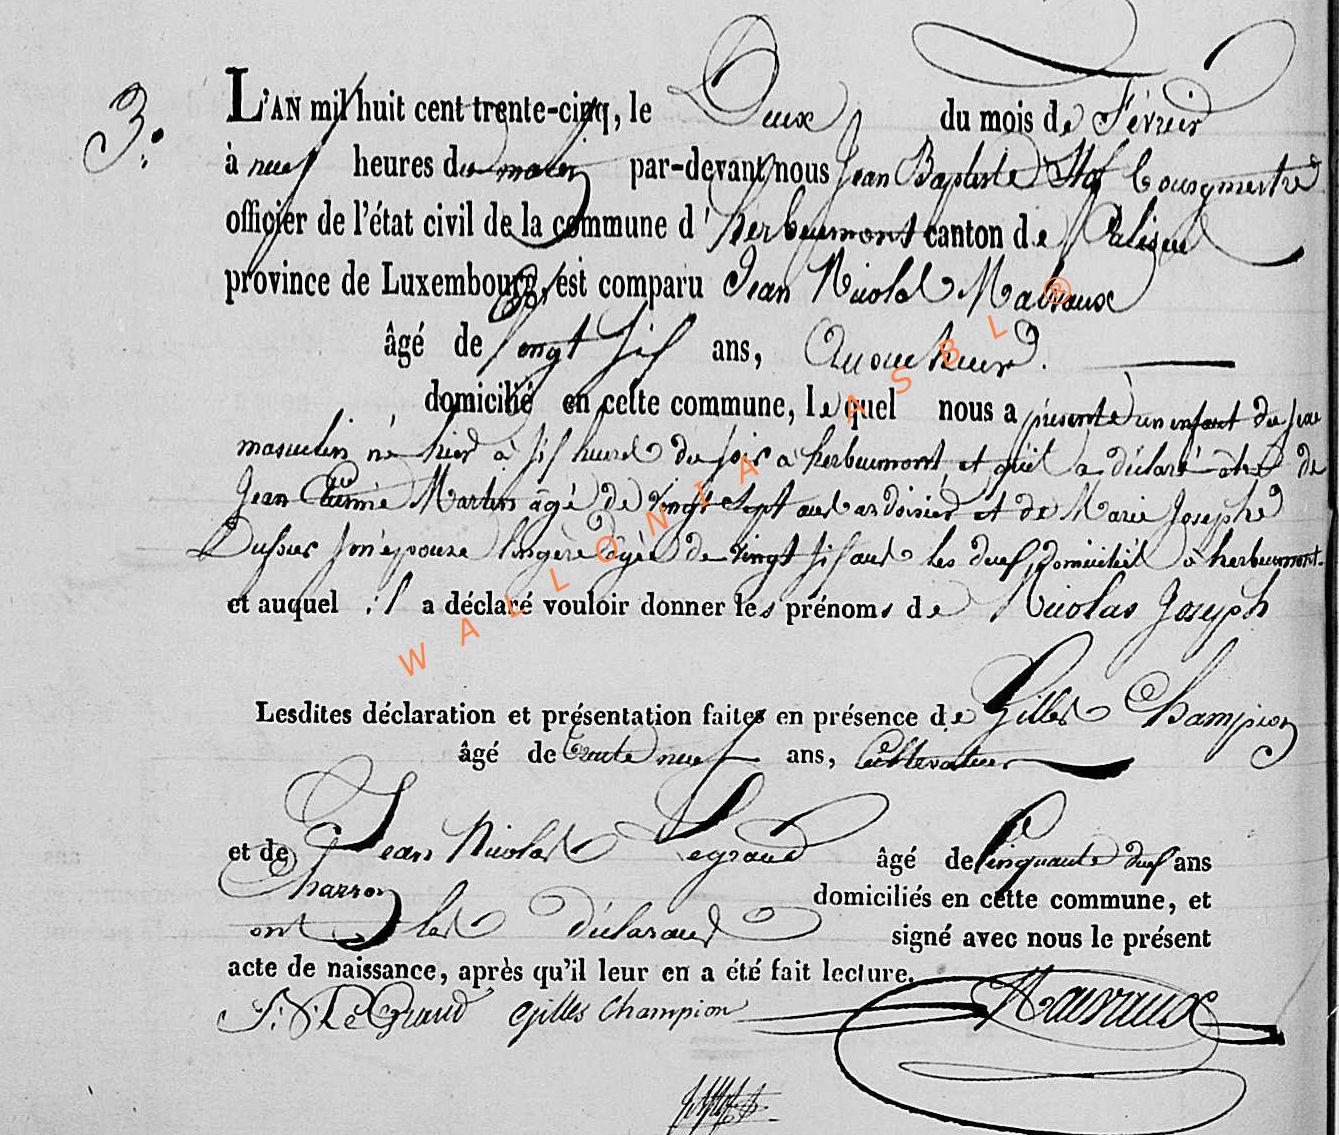 3.
L'AN mil huit cent trente-cinq, le Deux du mois de Février
à neuf heures du matin par-devant nous Jean Baptiste Bourgmestre
officier de l'état civil de la commune d'herbeumont canton de Paliseul
province de Luxembourg, est comparu Jean Nicolas Mavraux
âgé de vingt six ans, Accoucheur.
domicilié en cette commune, lequel nous a présenté un enfant du sexe
masculin né hier à six heures du soir à herbeumont et qu'il a déclaré être de
Jean Martin âgé de vingt sept ans ardoisier et de Marie Josephe
son épouse lingère âgée de vingt six ans les deux domiciliés à herbeumont.
et auquel il a déclaré vouloir donner les prénoms de Nicolas Joseph
Lesdites déclaration et présentation faites en présence de Gilles Champion
âgé de trente neuf ans, Cultivateur
et de Jean Nicolas Legrand âgé de cinquante deux ans
Charron domiciliés en cette commune, et
ont les déclarans signé avec nous le présent
acte de naissance, après qu'il leur en a été fait lecture.
J. N. LeGrand Gilles Champion Mavraux
WALLONIA ASBL ®